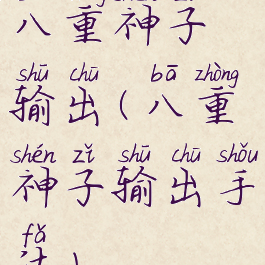 八重神子
shū chū bā zhòng
输出(八重
shén zǐ shū chū shǒu
神子输出手
fǎ
法)